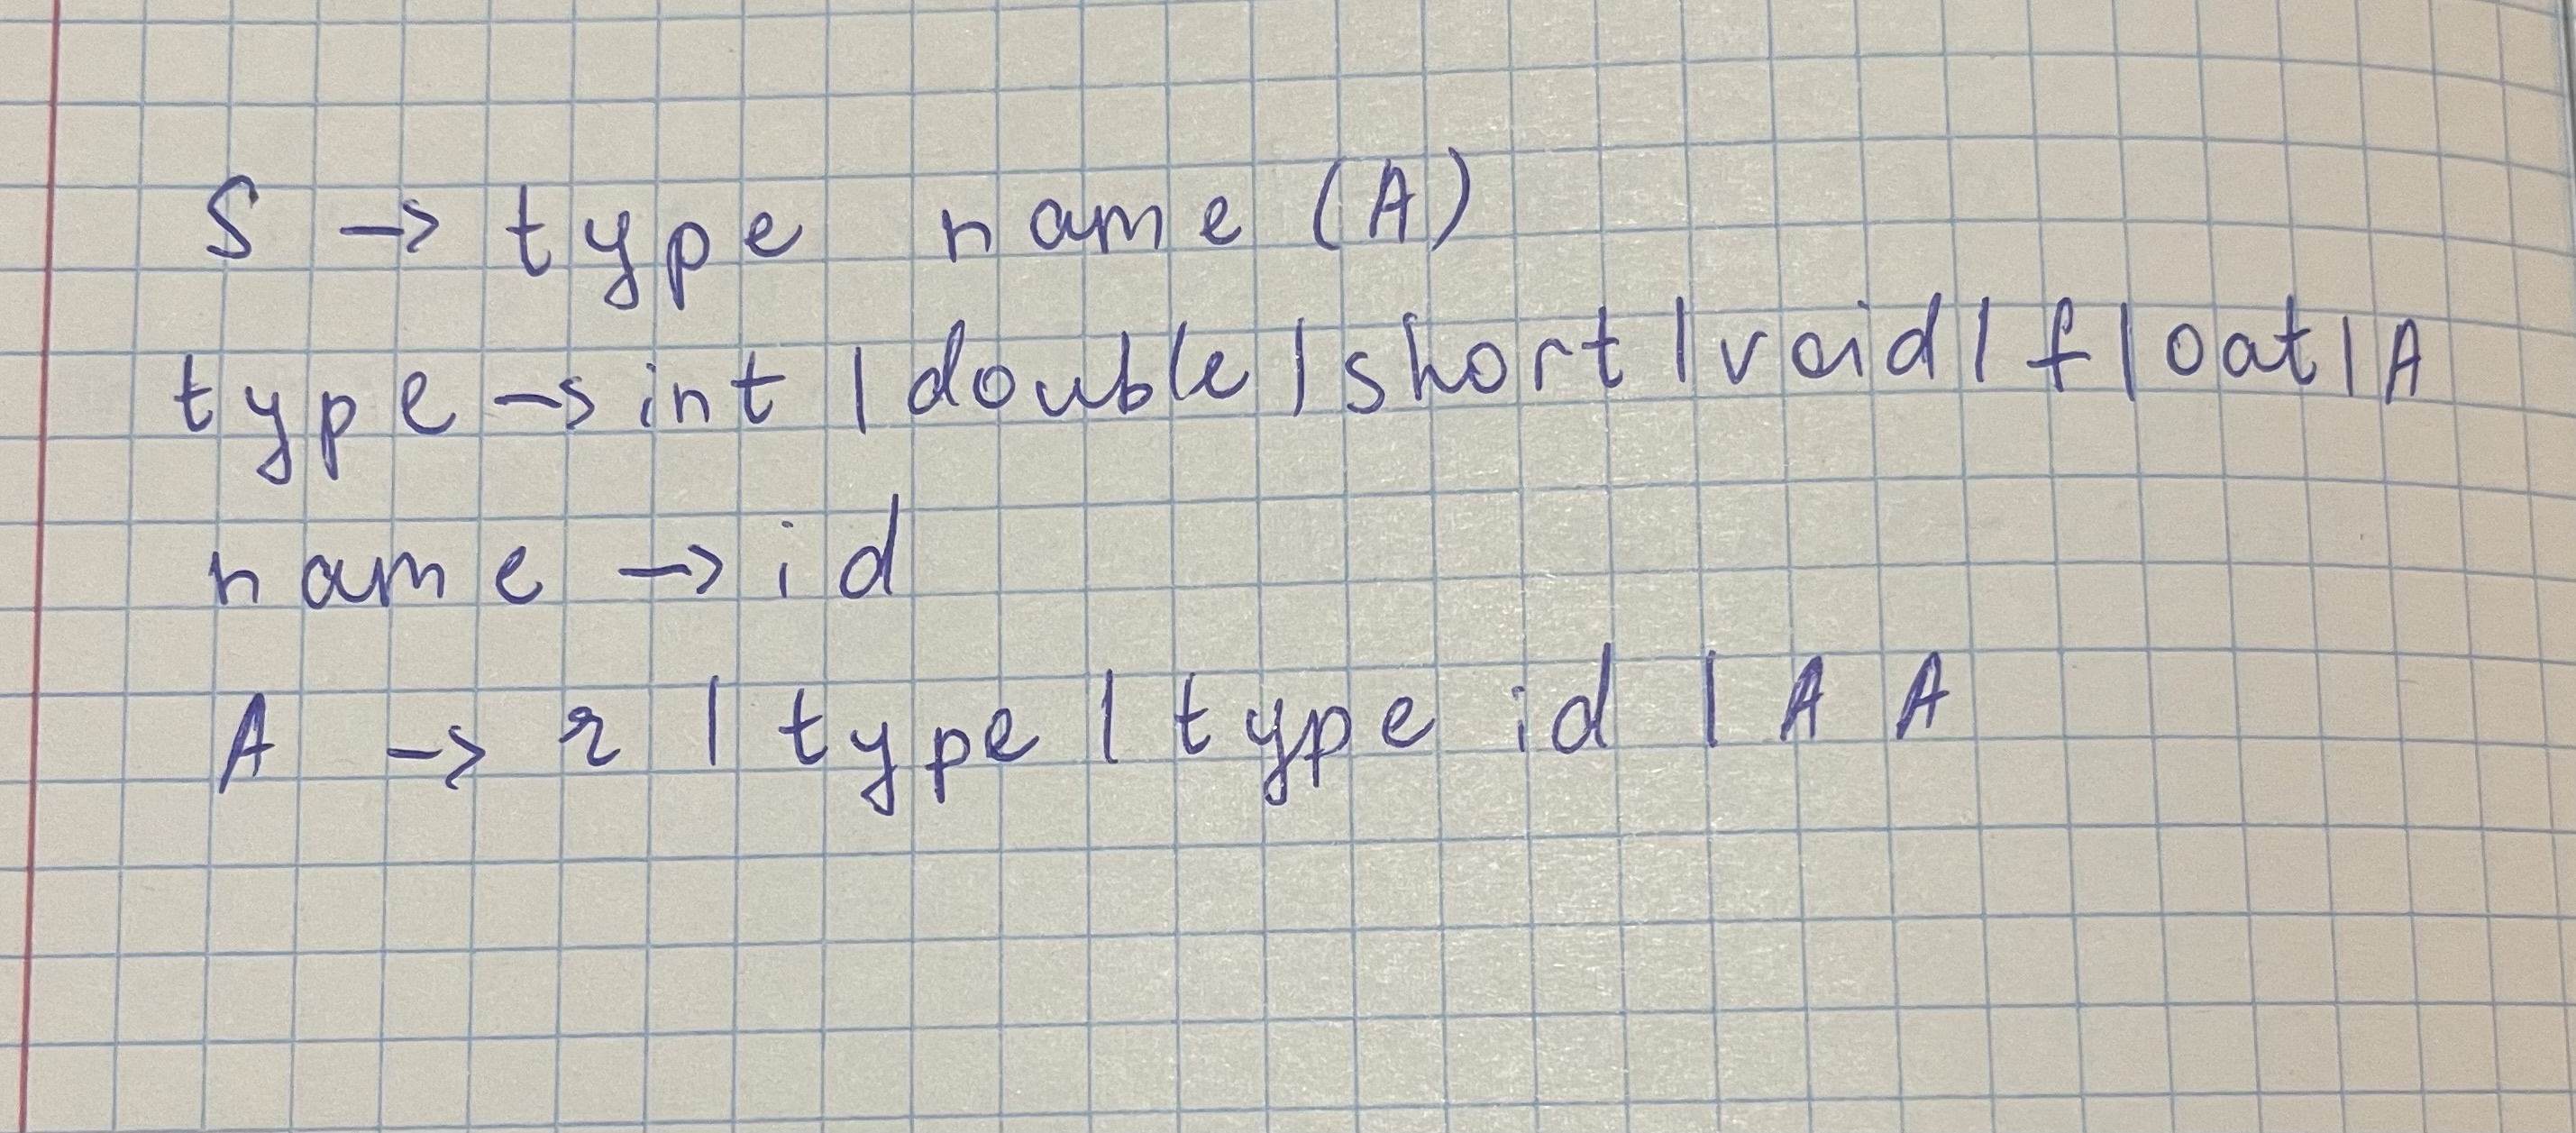 S → type name (A)
type → int | double | short | void | float | A
name → id
A → r | type | type id | A A